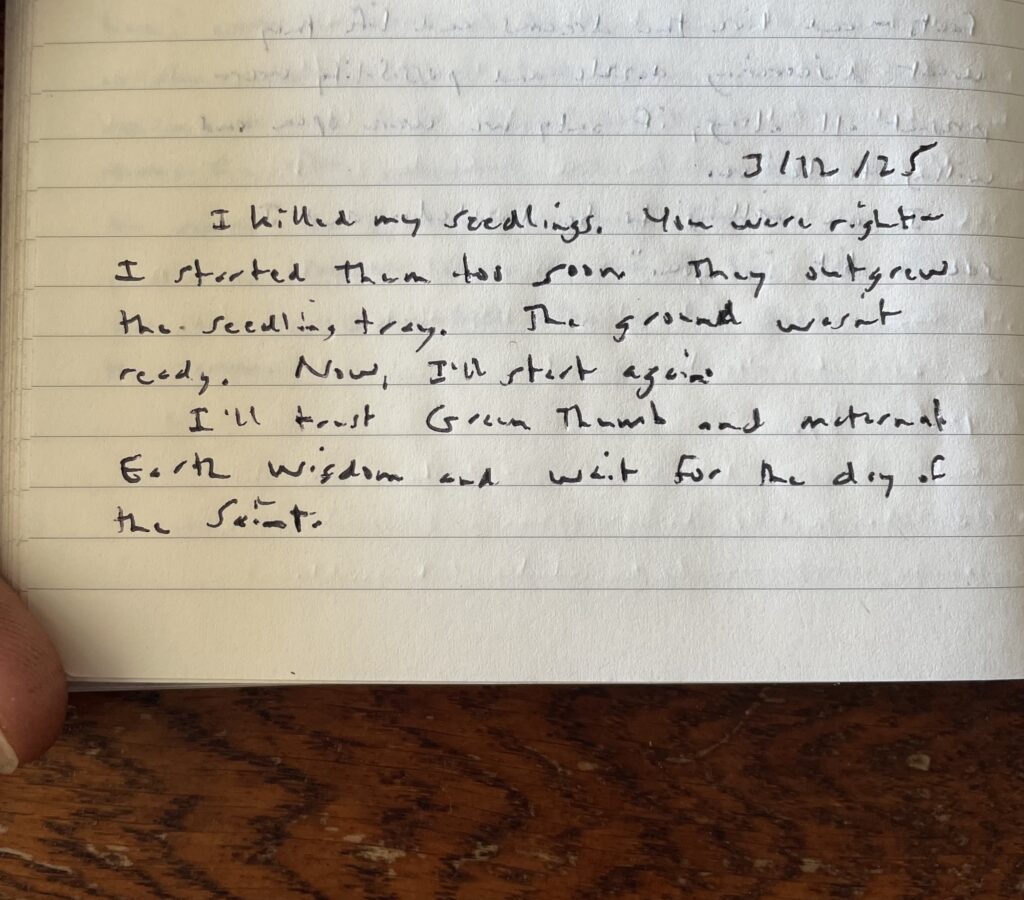 3/12/25
I killed my seedlings. You were right—
I started them too soon. They outgrew
the seedling tray. The ground wasnt
ready. Now, I'll start again.
I'll trust Green Thumb and maternal
Earth wisdom and wait for the day of
the Saint.